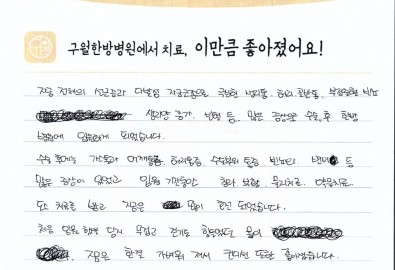 구월한방병원에서 치료, 이만큼 좋아졌어요!
자궁 전체의 선근증과 다발성 자궁근종으로 극심한 생리통, 허리, 골반통, 부정출혈, 빈뇨
생리량 증가, 빈혈 등 많은 증상으로 수술 후 한방
병원에 입원하게 되었습니다.
수술 후에는 가스통과 어깨통증, 허리통증, 수술부위 통증, 빈뇨 등
많은 증상이 있었고 입원 기간동안 침과 보약, 물리치료,
도수 치료를 받고 지금은 많이 호전 되었습니다.
처음 입원 했을 당시 무겁고 걷기도 힘들었던 몸이
지금은 한결 가벼워 져서 컨디션 또한 좋아졌습니다.